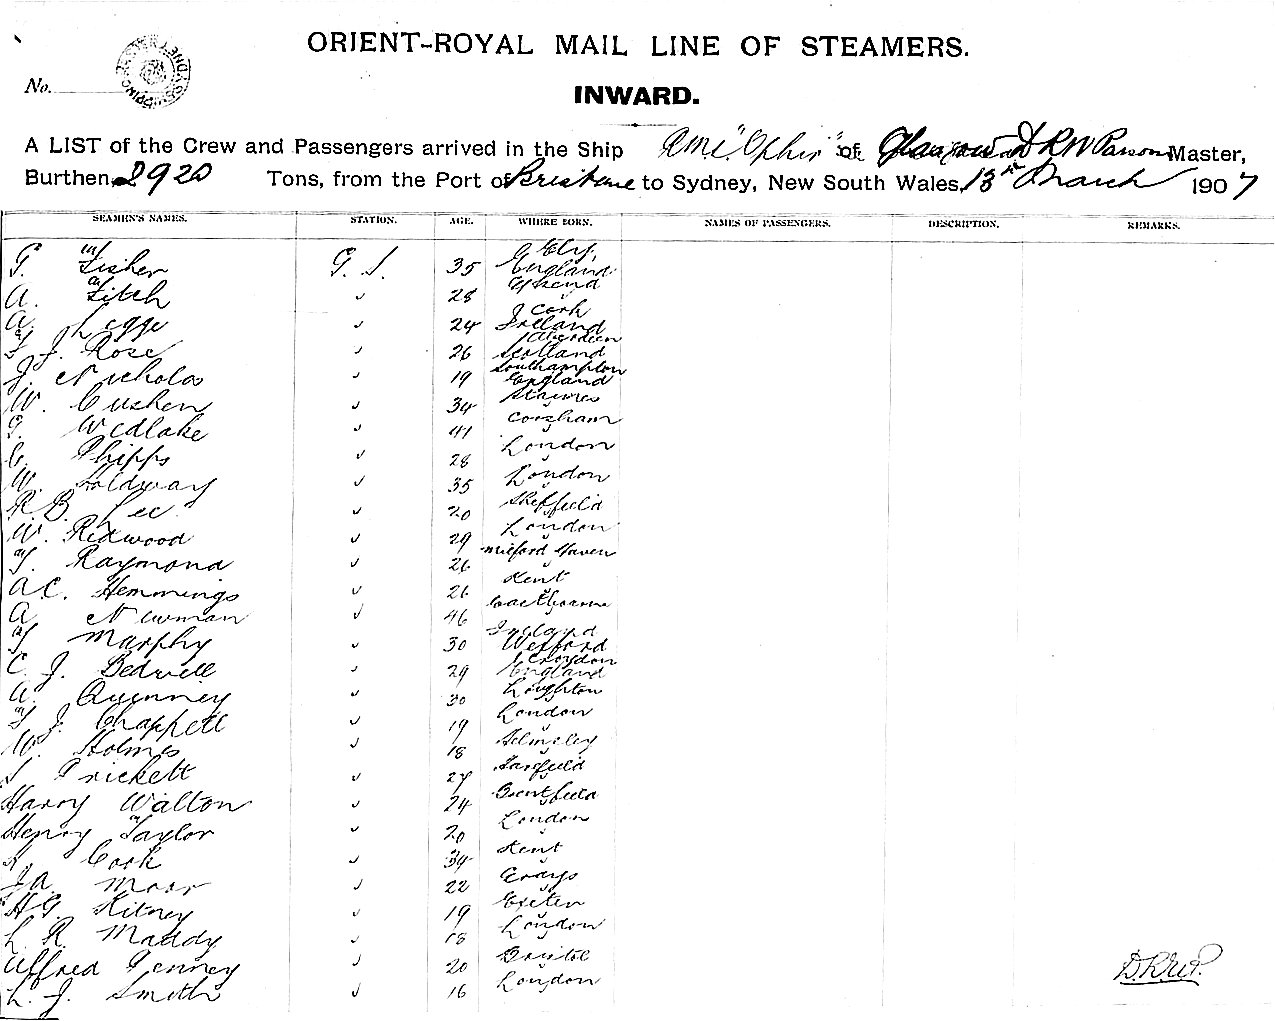 ORIENT-ROYAL MAIL LINE OF STEAMERS.
No.
INWARD.
A LIST of the Crew and Passengers arrived in the Ship RMS "Ophir" of Glasgow D R W Parsons Master,
Burthen 8920 Tons, from the Port of Brisbane to Sydney, New South Wales, 13th March 1907
SEAMEN'S NAMES. STATION. AGE. WHERE BORN. NAMES OF PASSENGERS. DESCRIPTION. REMARKS.
G. Fisher G. S. 35 Ely, England
A. Fitch " 28
A. Legge " 24 Cork Ireland
F. J. Rose " 26 Aberdeen Scotland
J. Nicholas " 19 Southampton England
W. Cushen " 34 Staines
G. Wedlake " 41 Corsham
C. Phipps " 28 London
W. Holdway " 35 London
R. B. Lee " 20 Sheffield
W. Redwood " 29 London
F. Raymond " 26 Milford Haven
A C. Hemmings " 26 Kent
A Newman " 46
T. Murphy " 30 Ireland Wexford
C. J. Bedwell " 29 Croydon England
A. Quenney " 30 Loughton
F. J. Chappell " 19 London
W. Holmes " 18 Helmsley
S Prickett " 27
Harry Walton " 24
Henry Taylor " 20 London
H. Cook " 34 Kent
J. A. Moor " 22 Grays
H. G. Kitney " 19 Exeter
L. R. Maddy " 18 London
Alfred Penney " 20 Bristol
L. J. Smith " 16 London
D.R.W.P.